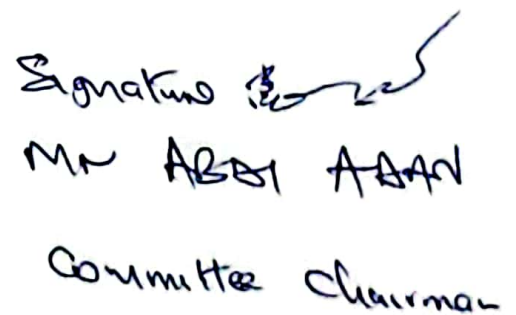 Signature
Mr ABDI ADAN
Committee Chairman